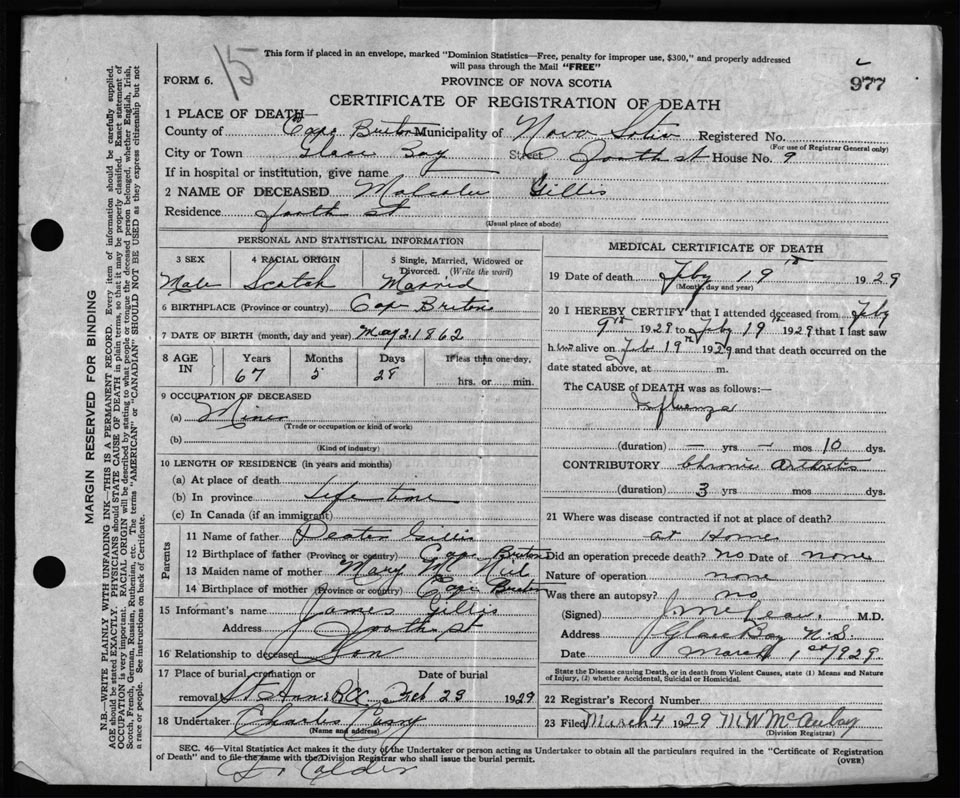 15
This form if placed in an envelope, marked "Dominion Statistics—Free, penalty for improper use, $300," and properly addressed
will pass through the Mail "FREE"
FORM 6.
PROVINCE OF NOVA SCOTIA
977
CERTIFICATE OF REGISTRATION OF DEATH
1 PLACE OF DEATH—
County of Cape Breton Municipality of Nova Sotia Registered No.
(For use of Registrar General only)
City or Town Glace Bay Street House No. 9
If in hospital or institution, give name
2 NAME OF DECEASED Malcolm Gillis
Residence St
(Usual place of abode)
PERSONAL AND STATISTICAL INFORMATION
3 SEX 4 RACIAL ORIGIN 5 Single, Married, Widowed or Divorced. (Write the word)
Male Scotch Married
6 BIRTHPLACE (Province or country) Cape Breton
7 DATE OF BIRTH (month, day and year) May 2. 1862
8 AGE IN Years Months Days If less than one day,
67 5 28 hrs. or min.
9 OCCUPATION OF DECEASED
(a) Miner
(Trade or occupation or kind of work)
(b)
(Kind of industry)
10 LENGTH OF RESIDENCE (in years and months)
(a) At place of death
(b) In province Life time
(c) In Canada (if an immigrant)
Parents
11 Name of father Gillis
12 Birthplace of father (Province or country) Cape Breton
13 Maiden name of mother Mary Mc Neil
14 Birthplace of mother (Province or country) Cape Breton
15 Informant's name James Gillis
Address
16 Relationship to deceased Son
17 Place of burial, cremation or removal Date of burial
St Anns R.C. Feb 23 1929
18 Undertaker Charles Curry
(Name and address)
MEDICAL CERTIFICATE OF DEATH
19 Date of death Feby 19th 1929
(Month, day and year)
20 I HEREBY CERTIFY that I attended deceased from Feby
9th 1929 to Feby 19th 1929 that I last saw
him alive on Feb 19th 1929 and that death occurred on the
date stated above, at m.
The CAUSE of DEATH was as follows:—
Influenza
(duration) — yrs — mos 10 dys.
CONTRIBUTORY Chronic Arthrits
(duration) 3 yrs mos dys.
21 Where was disease contracted if not at place of death?
at Home
Did an operation precede death? no Date of none
Nature of operation none
Was there an autopsy? no
(Signed) J. McLean, M.D.
Address Glace Bay N.S.
Date March 1st/1929
State the Disease causing Death, or in death from Violent Causes, state (1) Means and Nature
of Injury, (2) whether Accidental, Suicidal or Homicidal.
22 Registrar's Record Number
23 Filed March 4 1929 M W McAulay
(Division Registrar)
SEC. 46—Vital Statistics Act makes it the duty of the Undertaker or person acting as Undertaker to obtain all the particulars required in the "Certificate of Registration
of Death" and to file the same with the Division Registrar who shall issue the burial permit.
(OVER)
Dr Calder
MARGIN RESERVED FOR BINDING
N.B.—WRITE PLAINLY WITH UNFADING INK—THIS IS A PERMANENT RECORD. Every item of information should be carefully supplied.
AGE should be stated EXACTLY. PHYSICIANS should STATE CAUSE OF DEATH in plain terms, so that it may be properly classified. Exact statement of
OCCUPATION is very important. RACIAL ORIGIN will be described by stating to what people or tongue the deceased person belonged, whether English, Irish,
Scotch, French, German, Russian, Ruthenian, etc. The terms "AMERICAN" or "CANADIAN" SHOULD NOT BE USED as they express citizenship but not
a race or people. See instructions on back of Certificate.